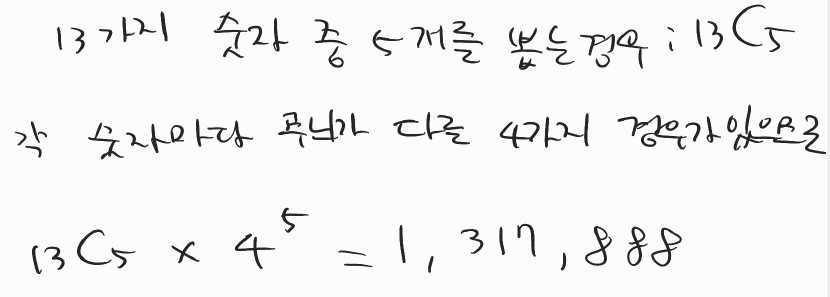 13가지 숫자 중 5개를 뽑는경우 : 13C5
각 숫자마다 무늬가 다른 4가지 경우가있으므로
13C5 × 4^5 = 1,317,888